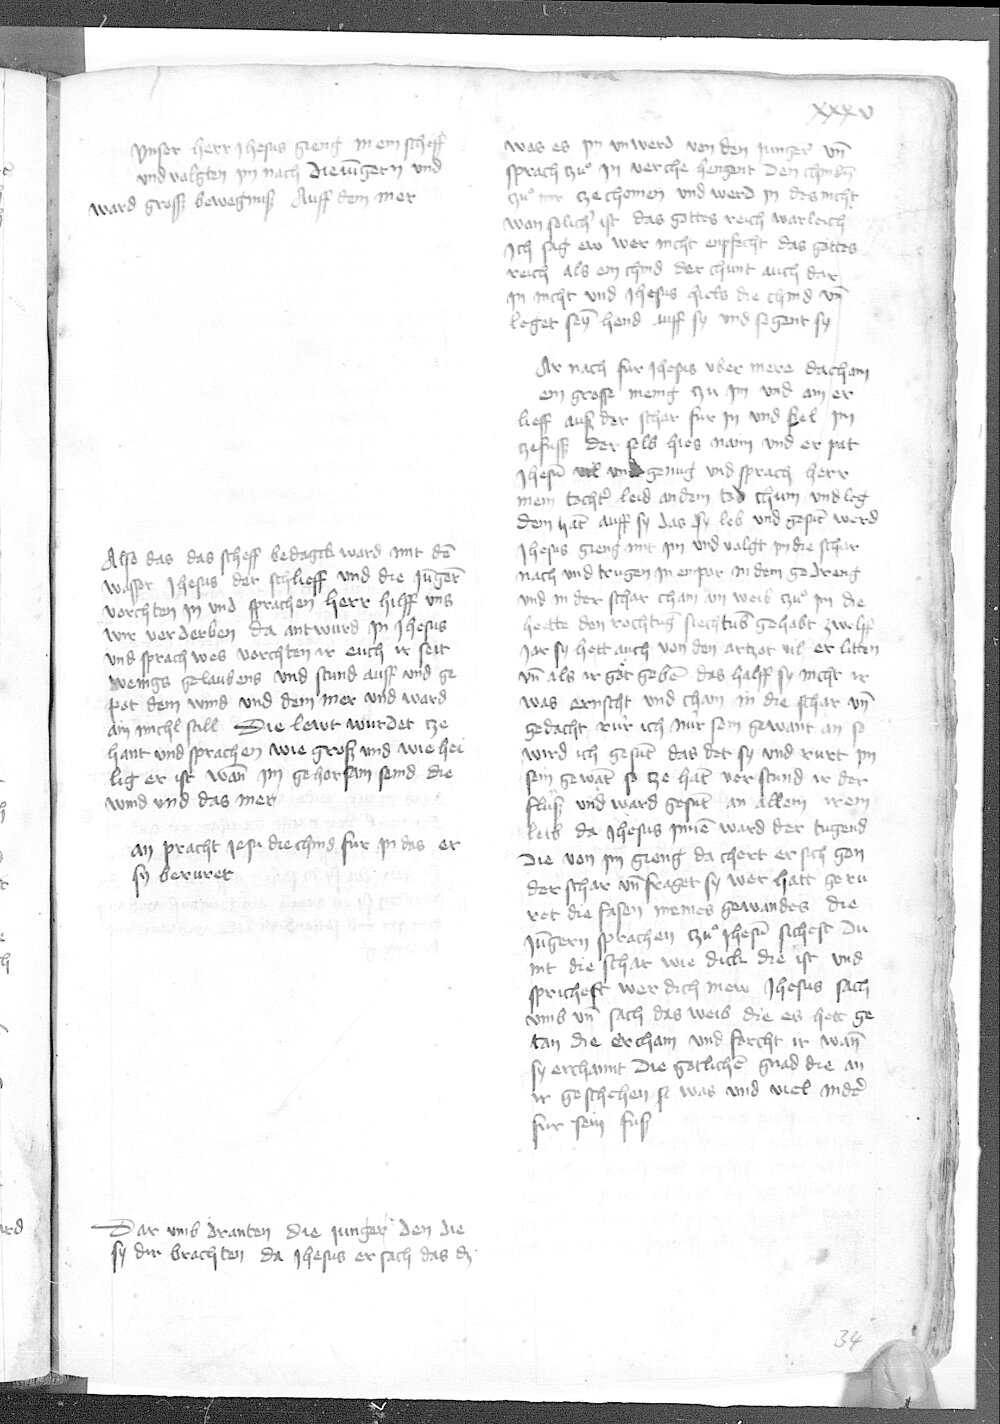 xxxv
Vnser herr Jhesus gieng in ein scheff
und valgten im nach die iūgern und
ward gross bewegnuß Auff dem mer
Also das das scheff bedackt ward mit dē
wasser Jhesus der schlieff und die Jūgerr
vorchten in und sprachen herr hilff uns
wir verderben da antwurd in Jhesus
und sprach wes vorchten ir euch ir seit
wenigs gelaubens und stund auff und ge
pot dem wind und dem mer und ward
ain michl still Die lewt wurdet ze
hant und sprachen wie groß und wie hei
lig er ist wan̄ im gehorsam seind die
wind und das mer
an pracht Jesu die chind für in das er
sy beruret
Dar umb dranten die Junger den die
sy dir brachten da Jhesus er sach das dz
was es im unwerd von den junger un̄
sprach zuͦ in verche hengent den chindn̄
zuͦ mir ze chomen und werd in das nicht
wan solicher ist das gottes reich warleich
Ich sag ew wer nicht enpfecht das gottes
reich als ein chind der chunt auch dar
in nicht und Jhesus hiels die chind un̄
leget sey̅ hend auff sy und segent sy
Ar nach fur Jhesus uber mere da cham
ein grosse menig zu im und ain er
lieff aus der schar fur in und viel im
ze fuss der selb hies nami und er pat
Jhesū vil und genug und sprach herr
mein tochter leid an dem tod chum und leg
dein hāt auff sy das sy leb und gesūt werd
Jhesus gieng mit im und valgt im die schar
nach und trugen in enpor in dem gedreng
und in der schar cham ain weib zuͦ im die
hette den siechtub̄ gehabt zwelff
Jar sy hett auch von den artzot vil er litten
un̄ als ir got gebē das halff sy nicht ir
was ernscht und cham in die schar un̄
gedacht rür ich nur sein gewant an so
wird ich gesūt das det sy und rurt im
sein gewāt so ze hāt verstund ir der
fluß und ward gesūt an allem irem
leib da Jhesus innē ward der tugend
die von im gieng da chert er sich gen
der schar un̄ fraget sy wer hatt geru
ret die fasen meines gewandes die
Jūgern sprachen zuͦ Jhesū sichest du
nit die schar wie dick die ist und
sprichest wer dich mew Jhesus sach
umb un̄ sach das weib die es hett ge
tan die ercham und forcht ir wan̄
sy erchannt die gotlichē gnad die an
ir geschehen was und viel nider
fur sein fuß
34